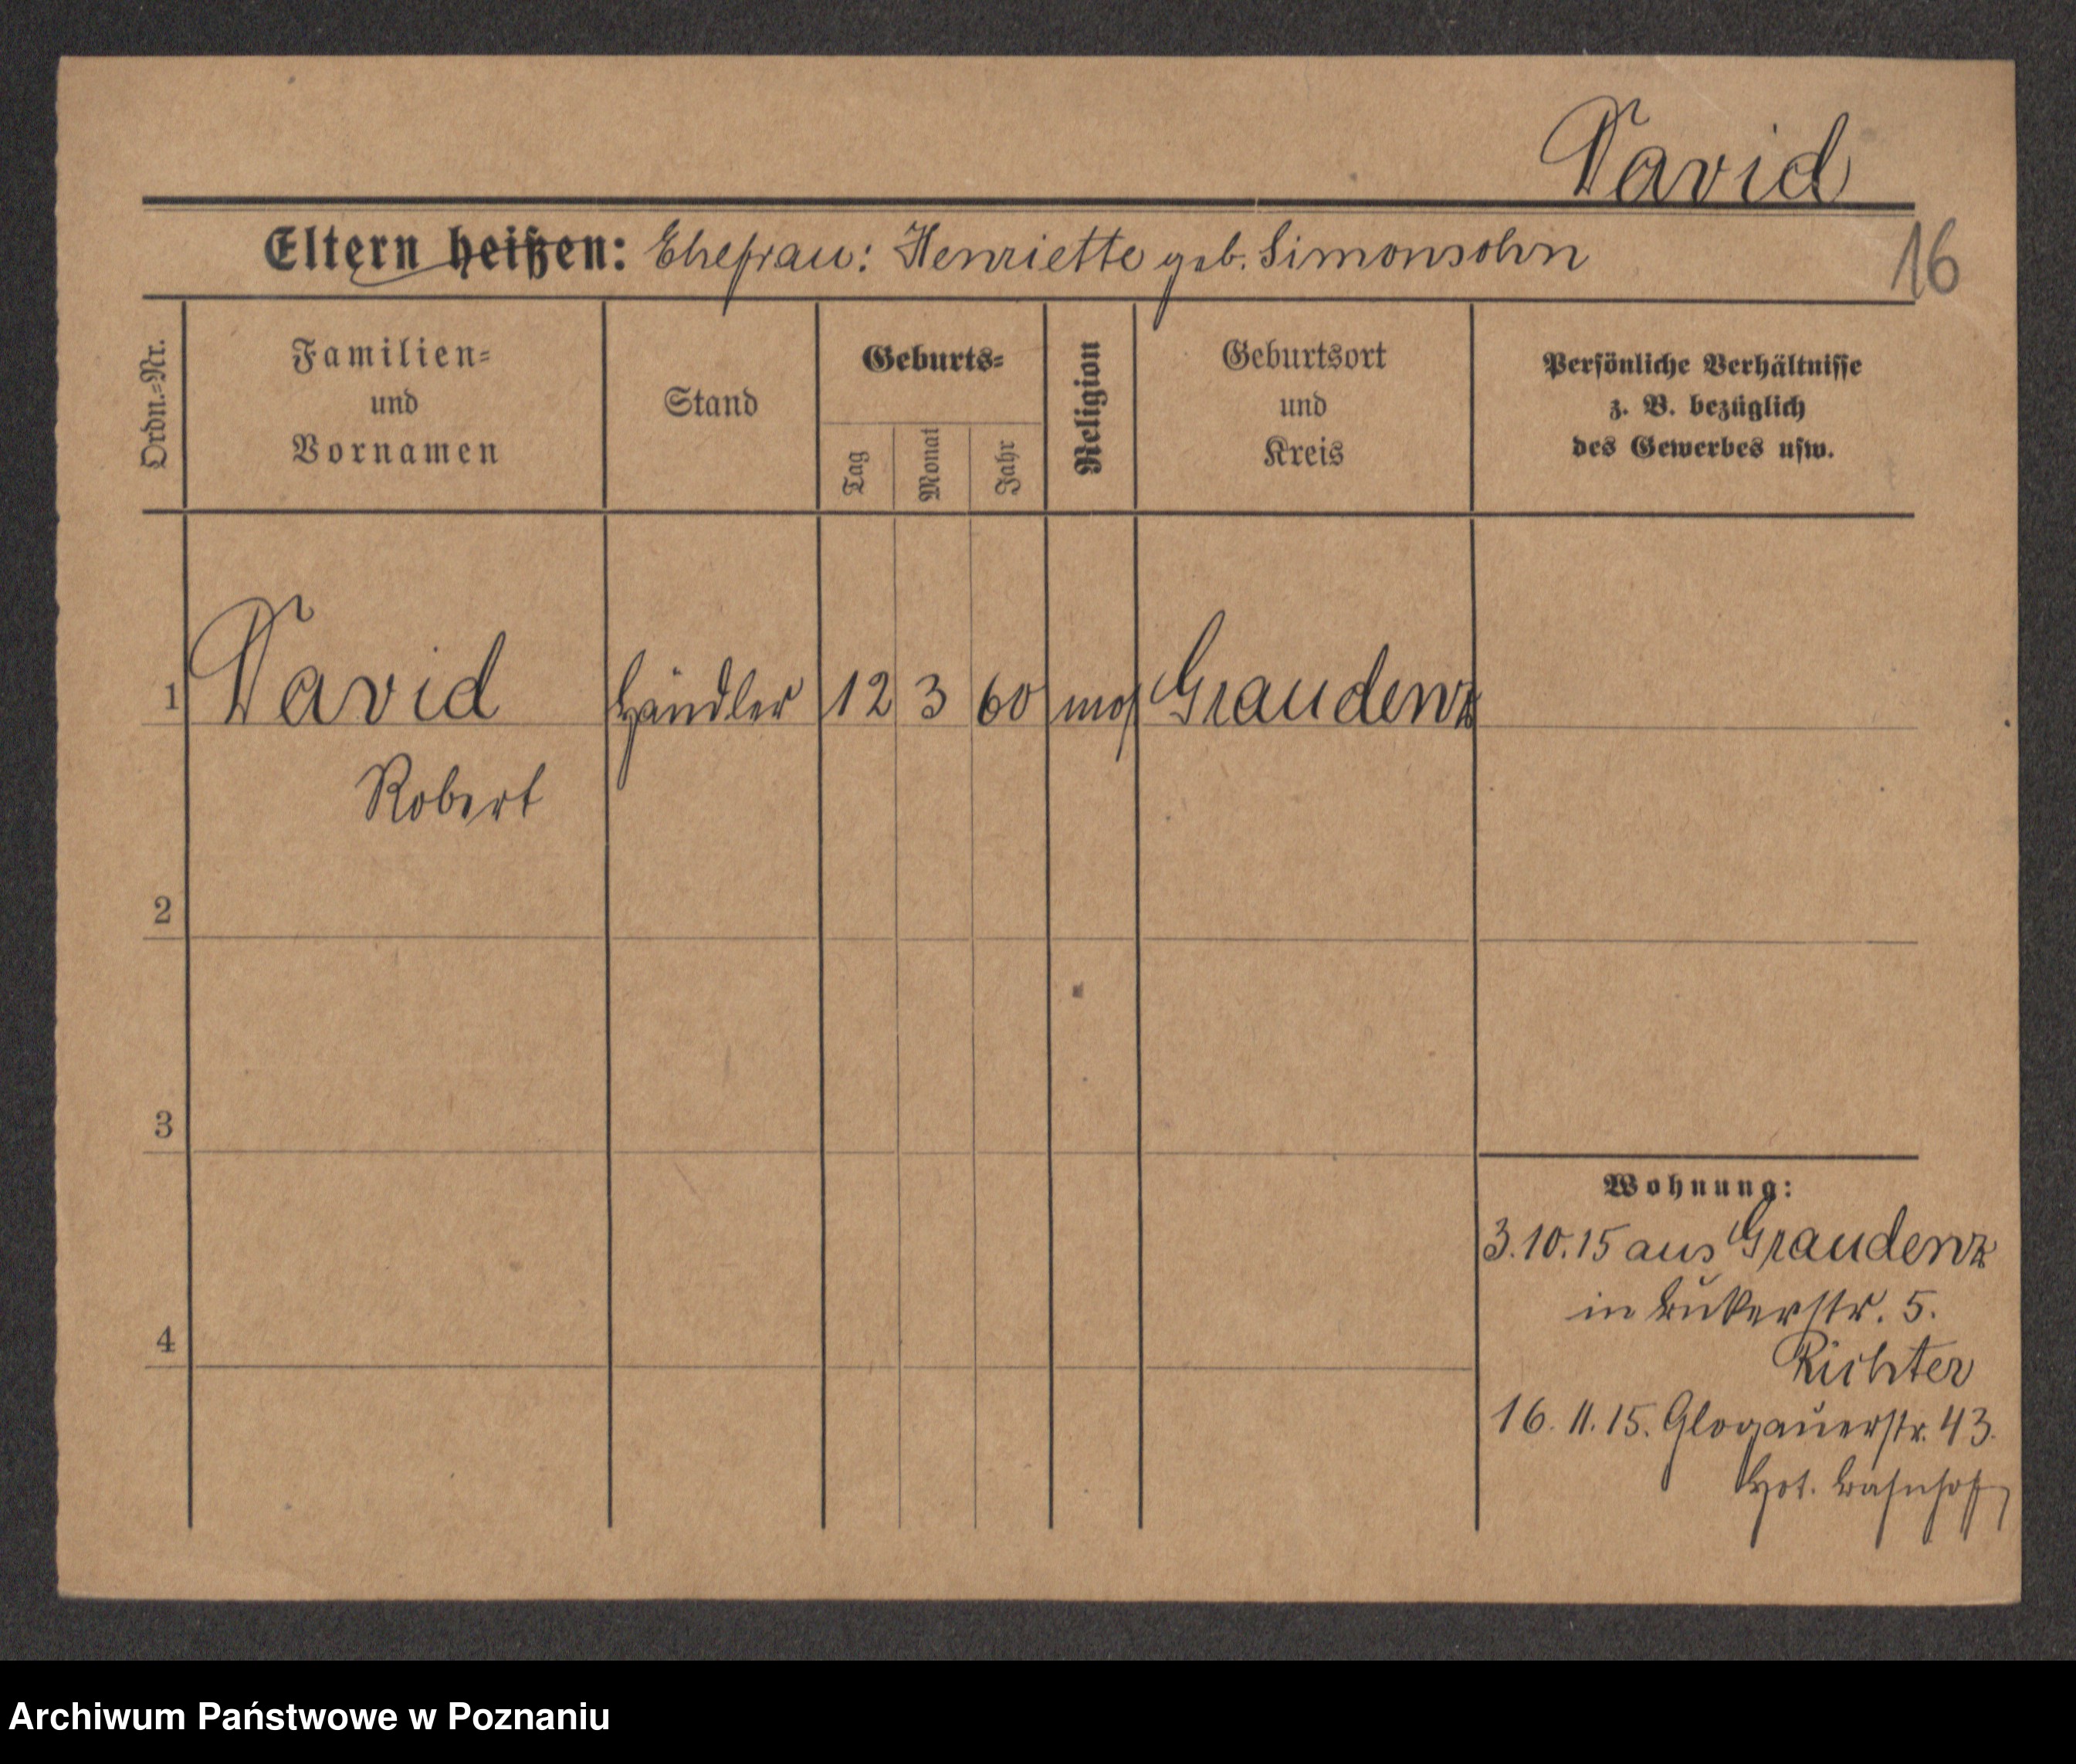 David
Eltern heißen: Ehefrau: Henriette geb. Simonsohn
16
Ordn.-Nr.
Familien-
und
Vornamen
Stand
Geburts-
Tag
Monat
Jahr
Religion
Geburtsort
und
Kreis
Persönliche Verhältnisse
z. B. bezüglich
des Gewerbes usw.
1 David Händler 12 3 60 mos Graudenz
Robert
2
3
4
Wohnung:
3.10.15 aus Graudenz
in Bukerstr. 5.
Richter
16.11.15. Glogauerstr. 43.
Hot. Bahnhof
Archiwum Państwowe w Poznaniu